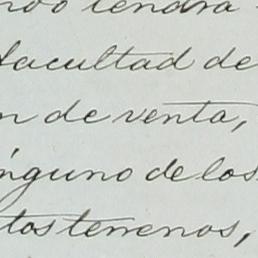 ndo tendrá
facultad de
n de venta,
inguno de los
tos terrenos,